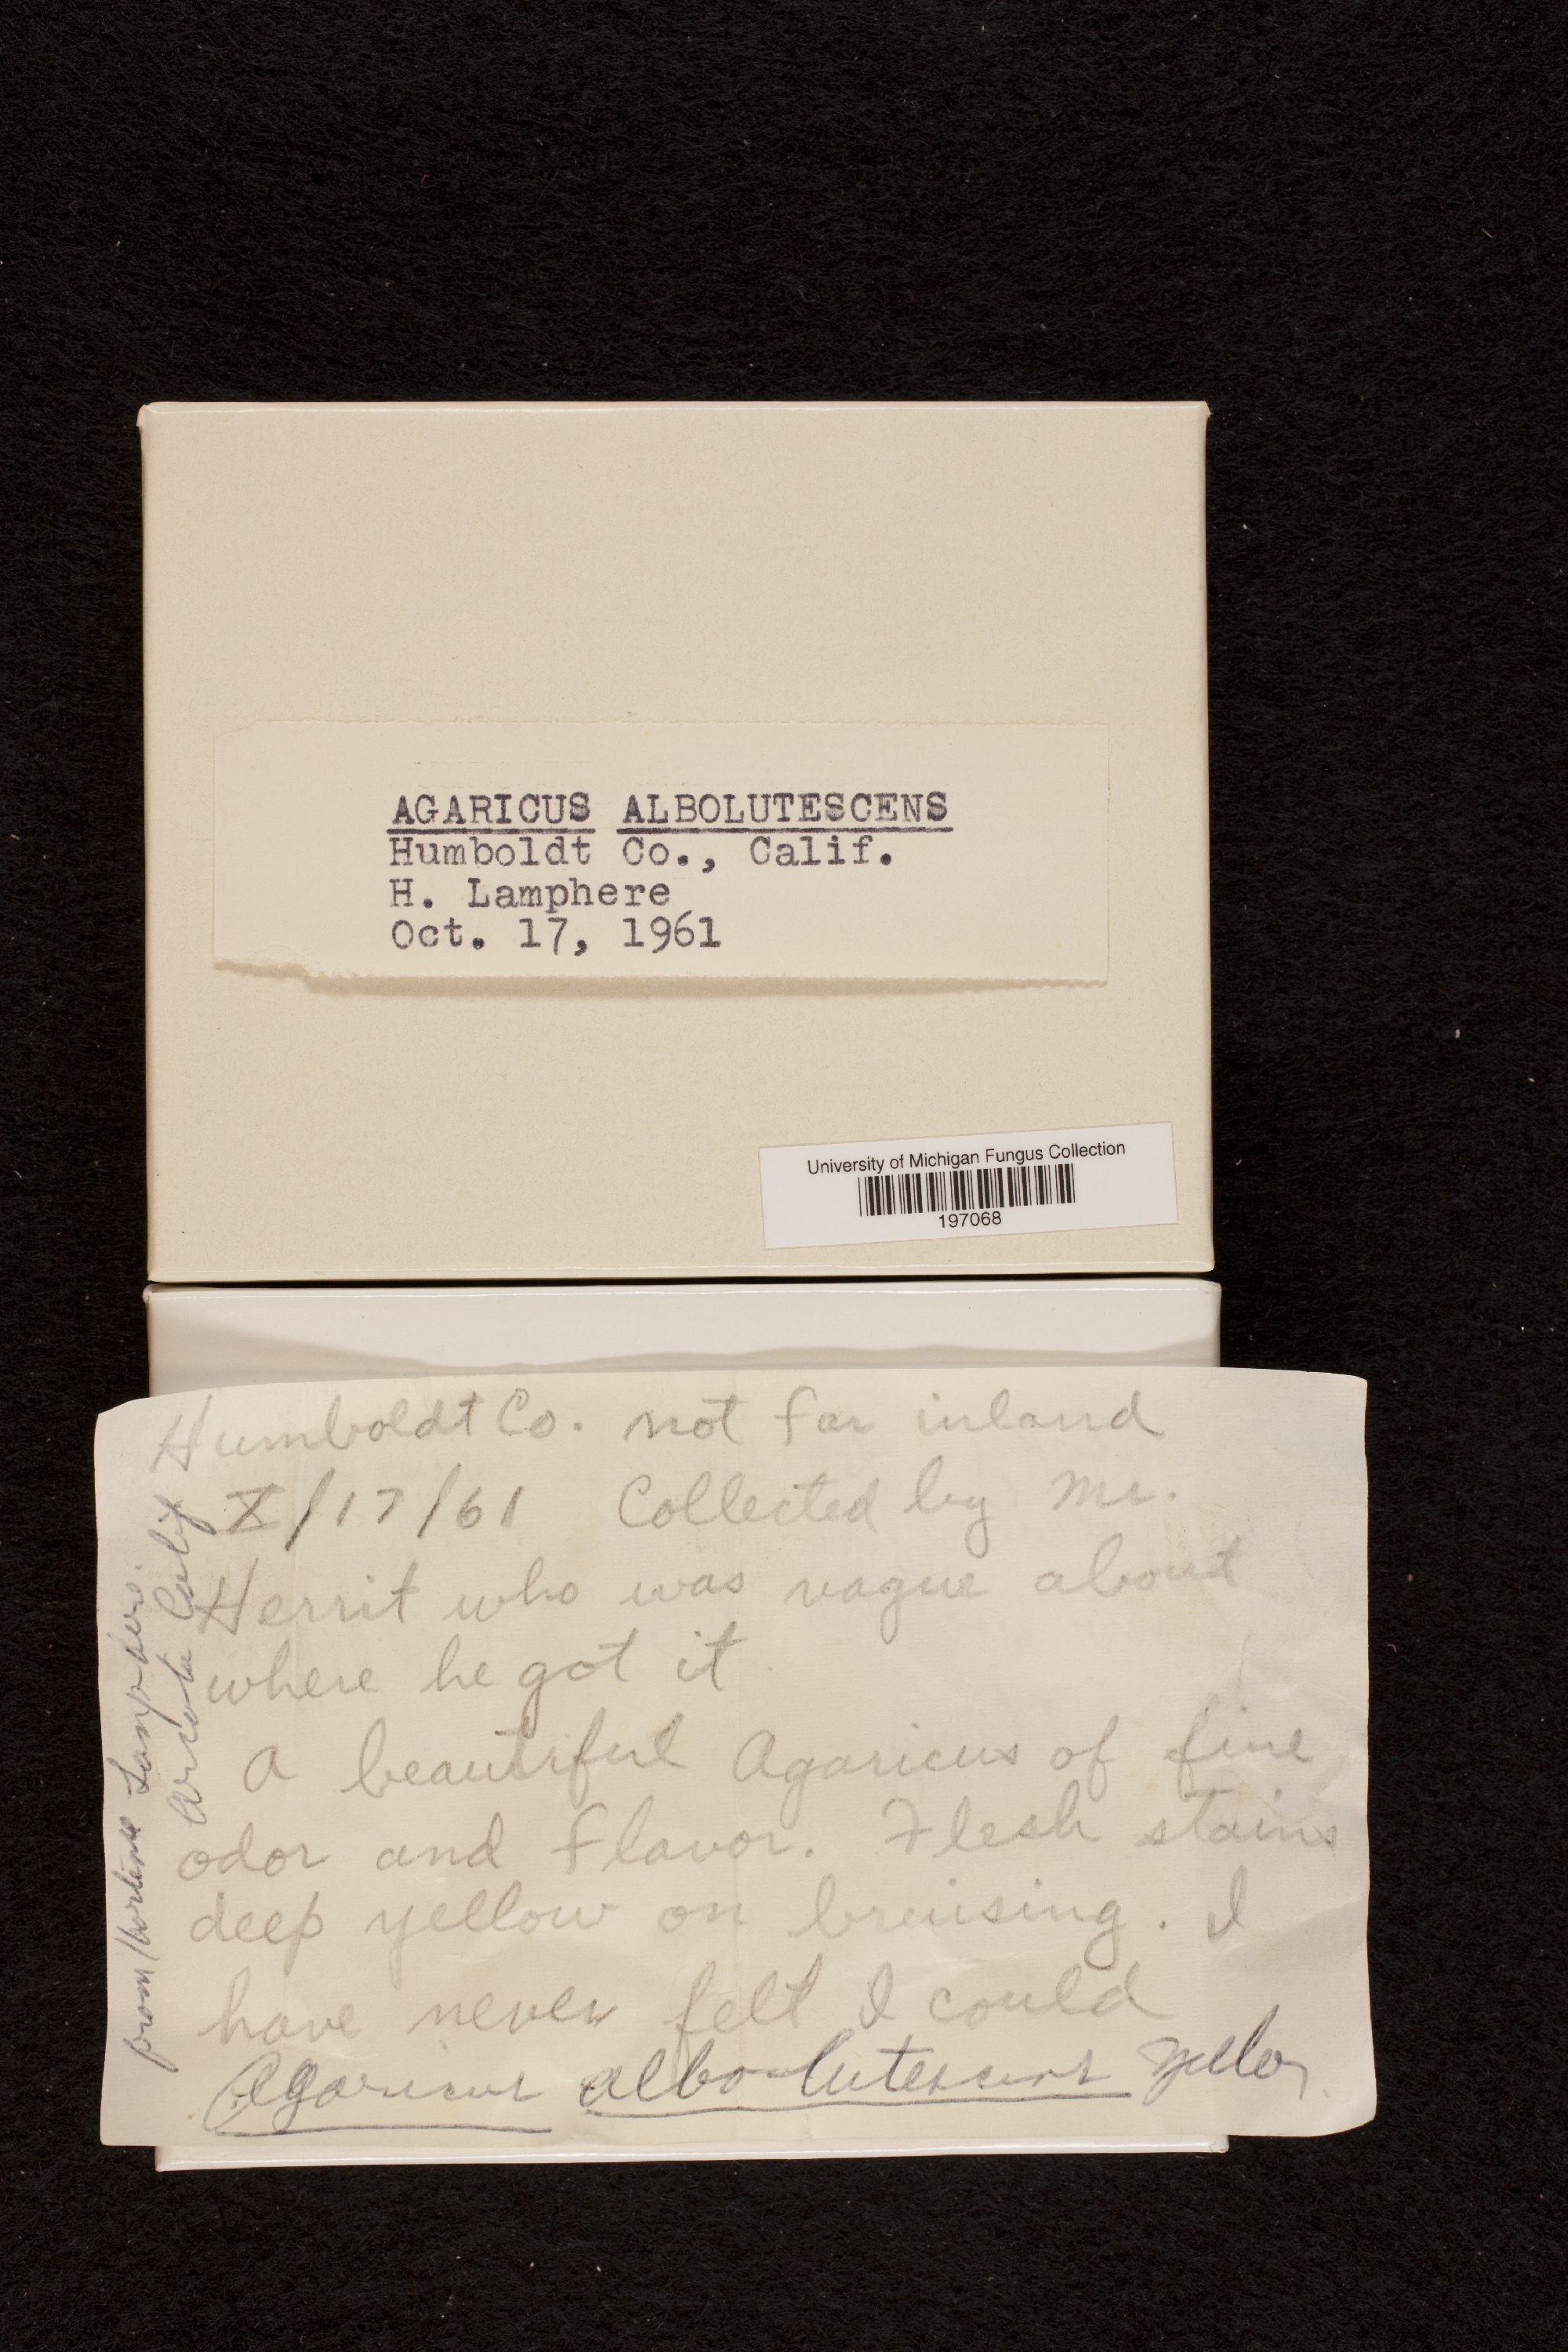 AGARICUS ALBOLUTESCENS
Humboldt Co., Calif.
H. Lamphere
Oct. 17, 1961
University of Michigan Fungus Collection
197068
Humboldt Co. not far inland
X/17/61 Collected by Mr.
Herrit who was vague about
where he got it
A beautiful Agaricus of fine
odor and flavor. Flesh stains
deep yellow on bruising. I
have never felt I could
Agaricus albo-lutescens
from Hortense Lamphere.
Arcata Calif